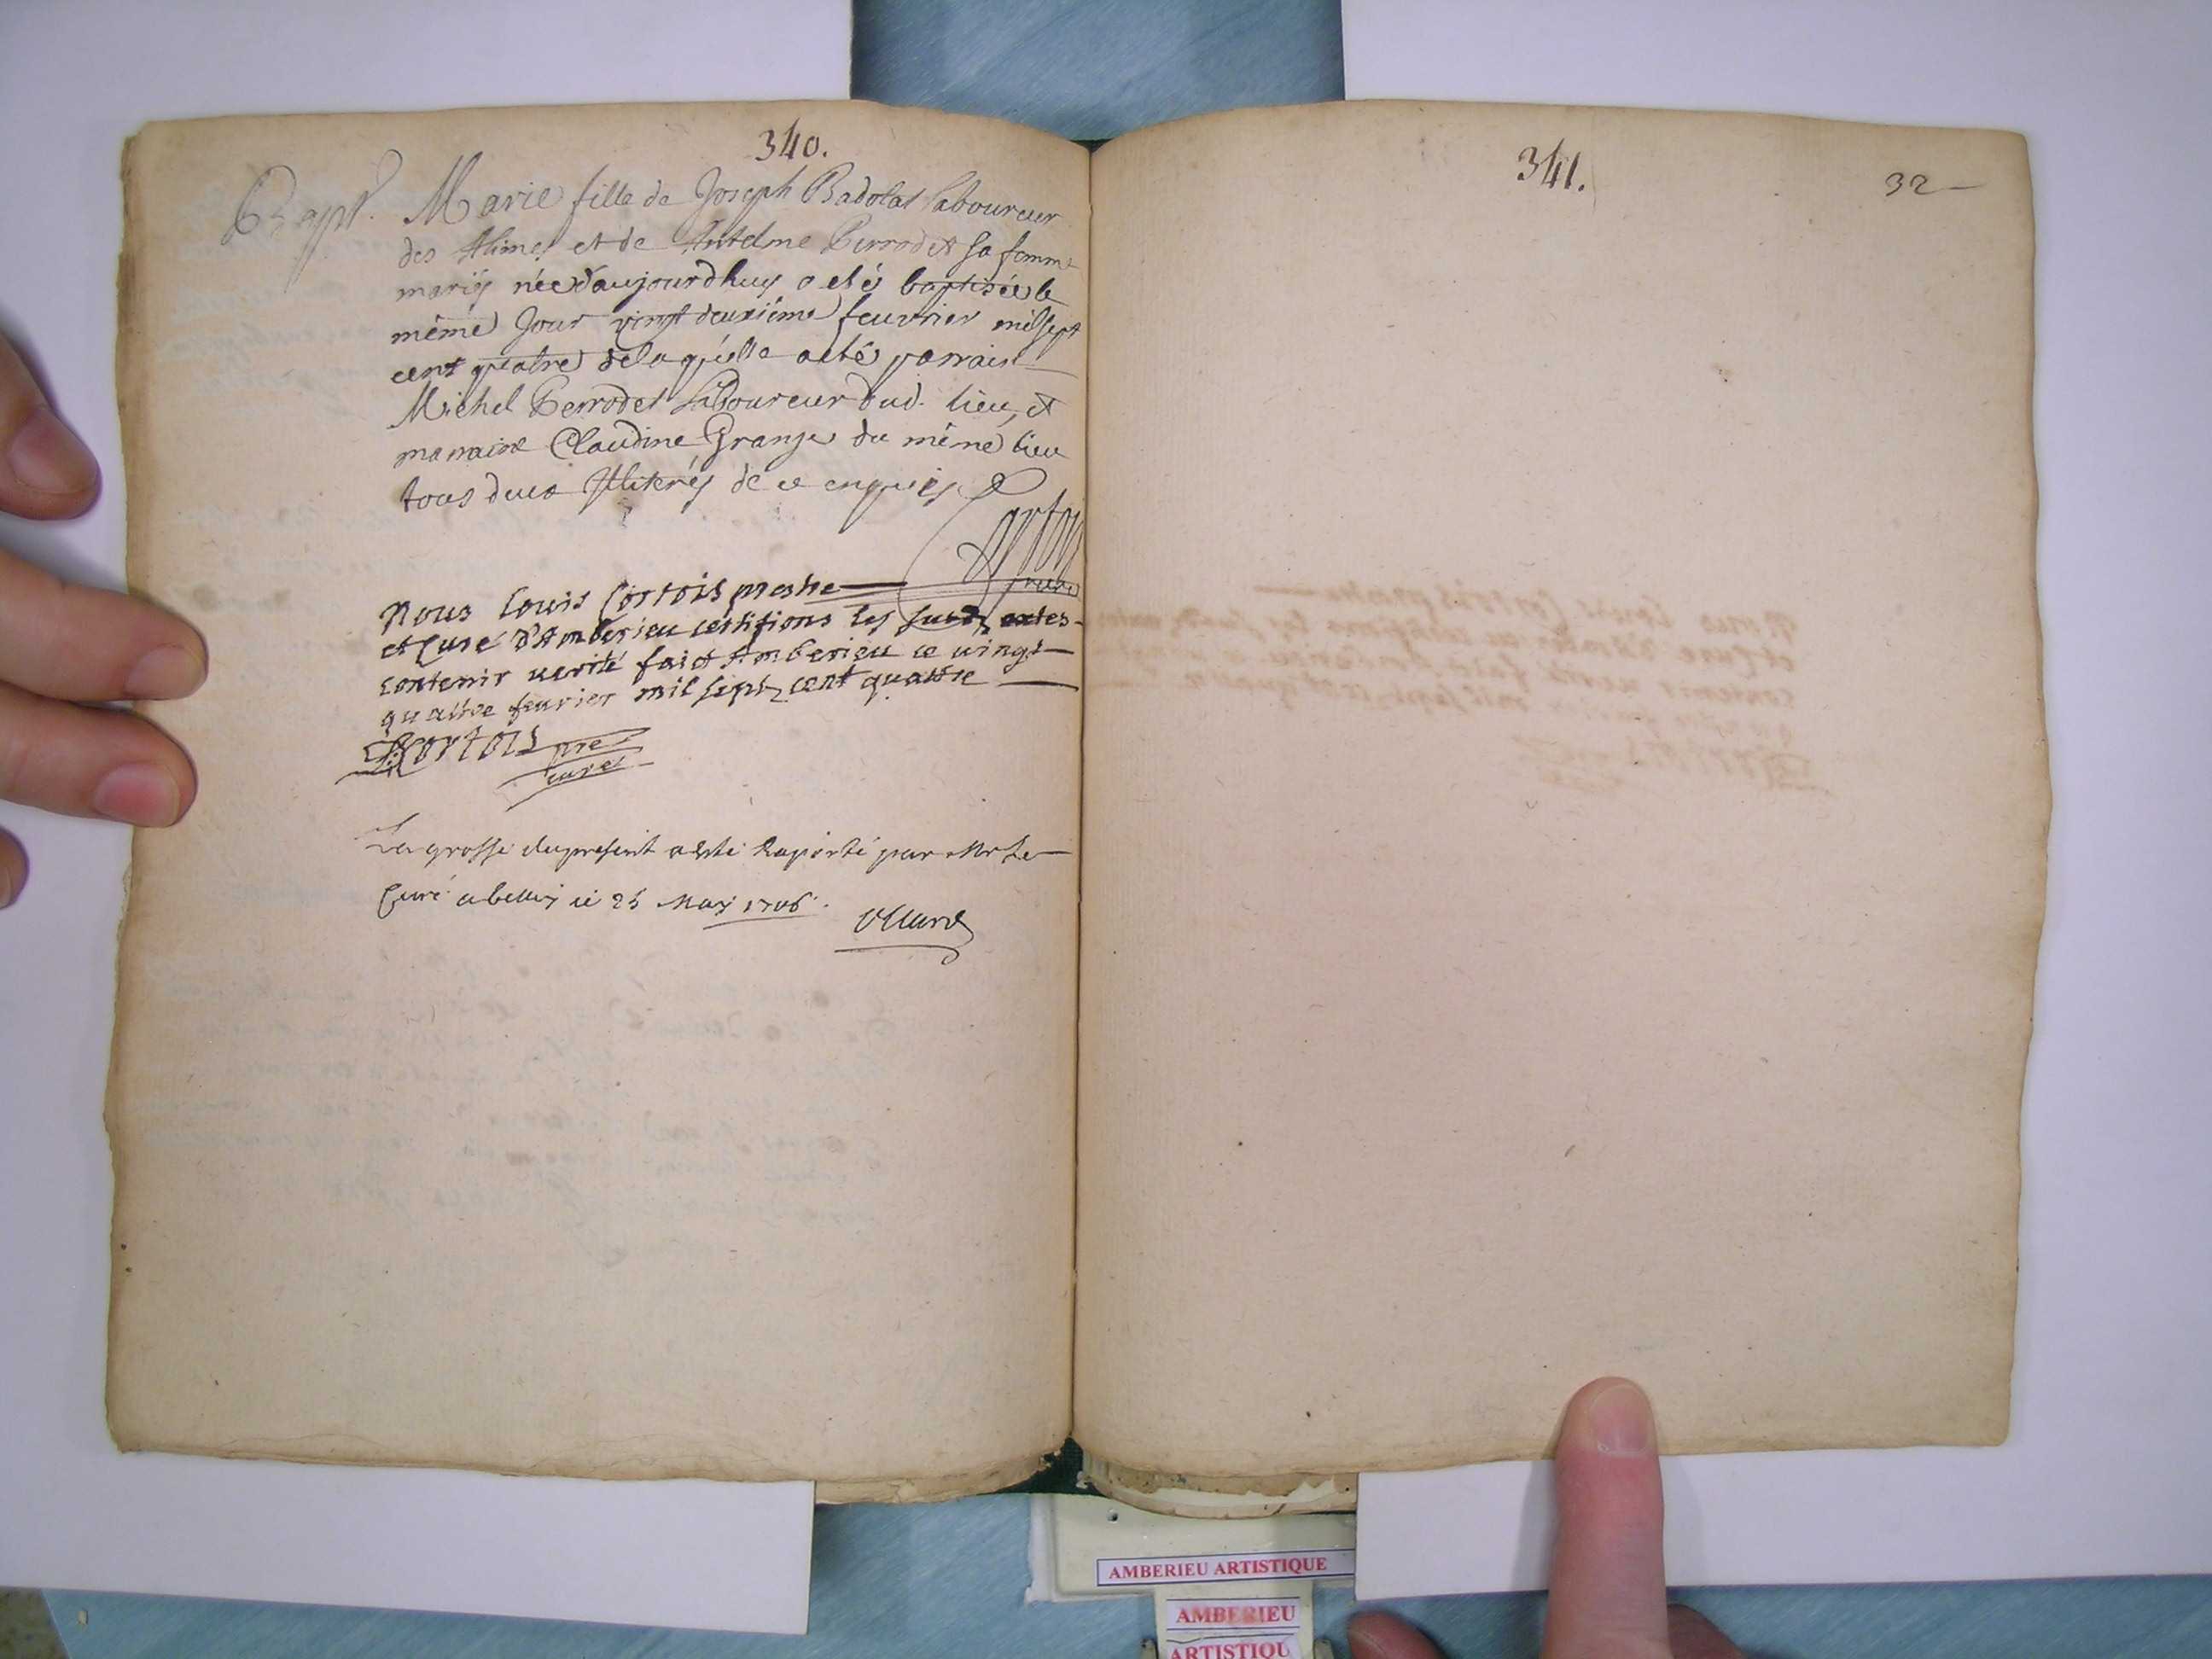 340.
Bapt. Marie fille de Joseph Badolat laboureur
des Alimes et de Antelme Perrodet sa femme
mariés née d'aujourdhuy a eté baptisée le
même Jour vingt deuxiéme feuvrier mil sept
cent quatre de laquelle a eté parrain
Michel Perrodet Laboureur dud. lieu, et
marraine Claudine Grange du même lieu
tous deux Illiterés de ce enquis
Cortois
Nous Louis Cortois prestre
et Curé d'Amberieu certifions les susd. actes
contenir verité fait Amberieu ce vingt
quattre feurier mil sept cent quattre
L. Cortois pre
curé
La grosse du present a esté raporté par Mr Le
Curé a belley ce 25 May 1706.
341.
32
AMBERIEU ARTISTIQUE
AMBERIEU
ARTISTIQU